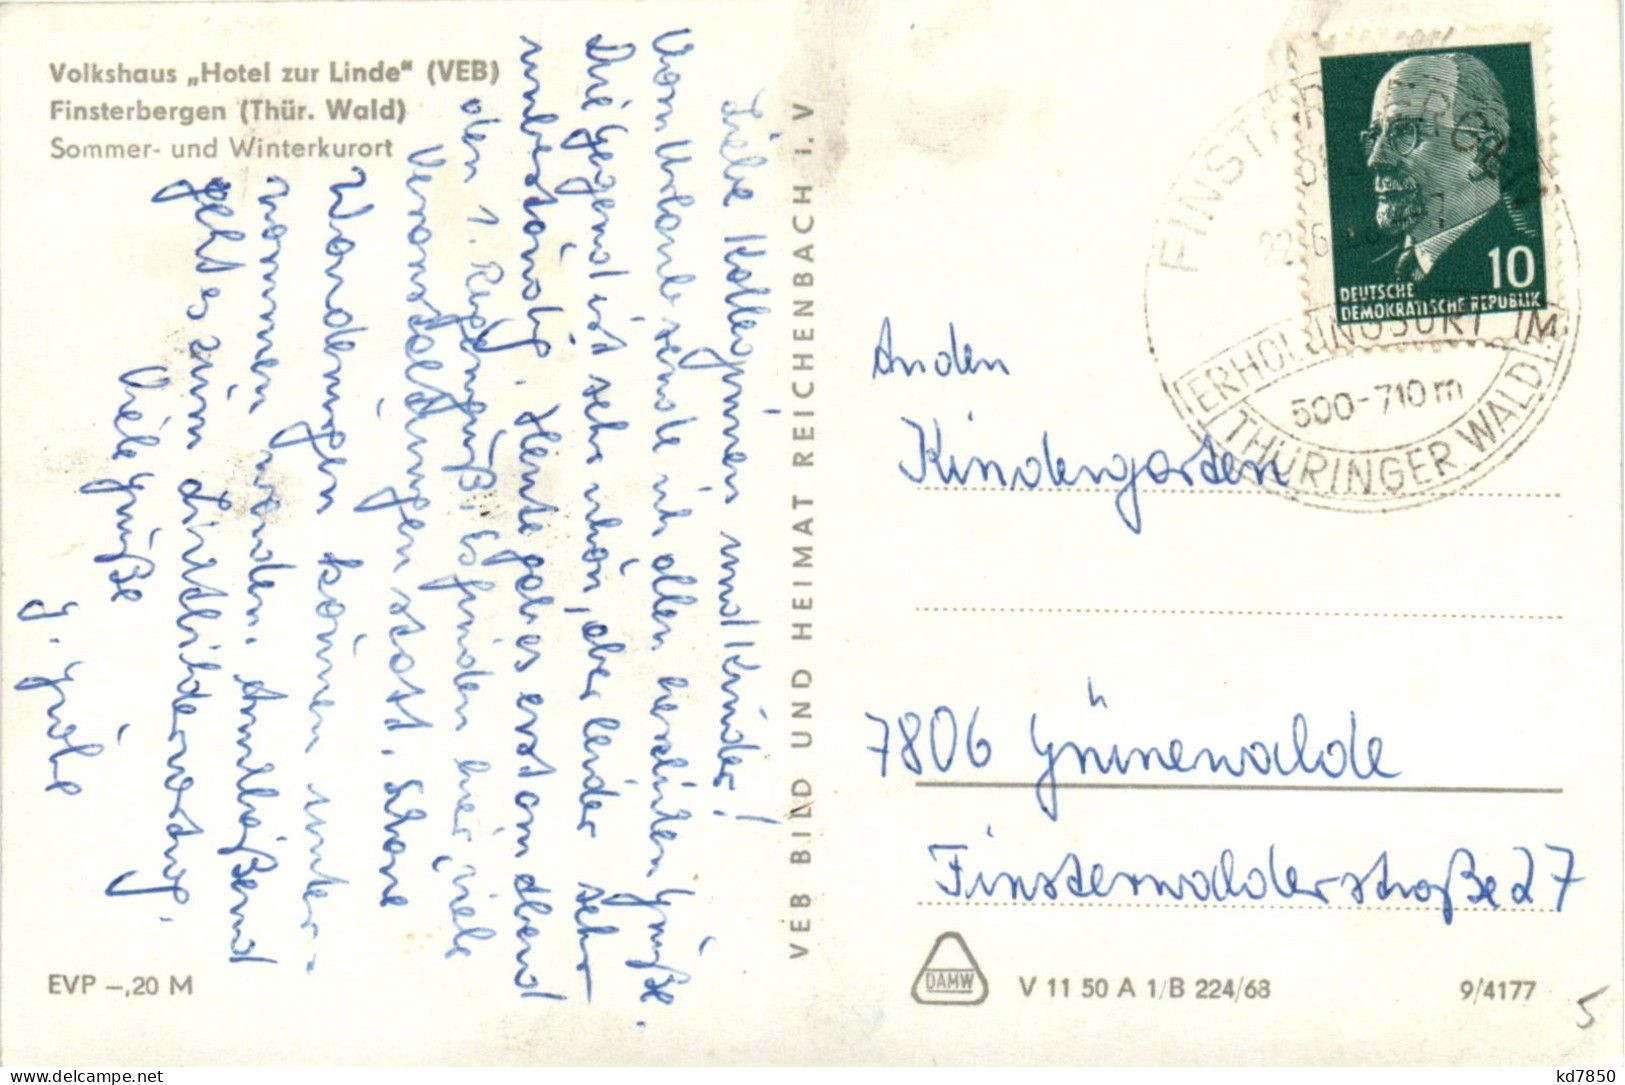 Volkshaus „Hotel zur Linde" (VEB)
Finsterbergen (Thür. Wald)
Sommer- und Winterkurort
Liebe Kolleginnen und Kinder!
Vom Urlaub sende ich allen die Grüße.
Die Gegend ist sehr schön, aber leider sehr
unbeständig. Heute gab es erst am Abend
den 1. Regenguß. Es finden hier viele
Veranstaltungen statt. Schöne
Wanderungen können unter-
nommen werden. Anschließend
geht es zum Lichtbildervortrag.
Viele Grüße
VEB BILD UND HEIMAT REICHENBACH i. V
EVP –,20 M
FINSTERBERGEN
ERHOLUNGSORT IM
500-710 m
THÜRINGER WALD
10
DEUTSCHE
DEMOKRATISCHE REPUBLIK
An den
Kindergarten
7806 Grünewalde
Finsterwalderstraße 27
DAMW
V 11 50 A 1/B 224/68
9/4177
5
kd7850